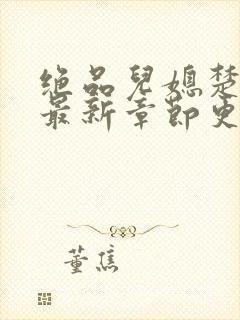 绝品儿媳楚
最新章节史
董焦